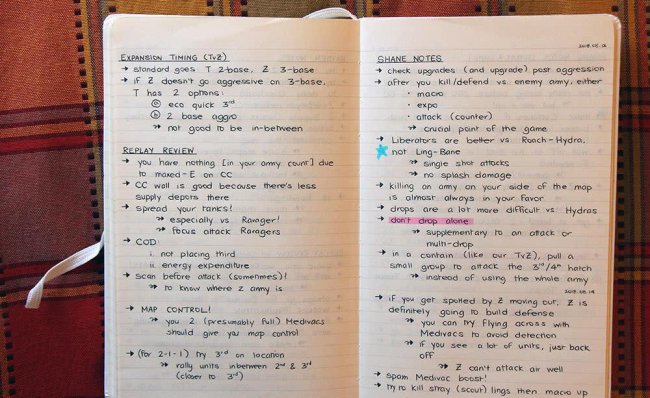 EXPANSION TIMING (TvZ)
→ standard goes T 2-base, Z 3-base
→ if Z doesn't go aggressive on 3-base,
T has 2 options:
ⓐ eco quick 3rd
ⓑ 2 base aggro
↪ not good to be in-between
REPLAY REVIEW
→ you have nothing [in your army count] due
to maxed-E on CC
→ CC wall is good because there's less
supply depots there
→ spread your tanks!
↪ especially vs. Ravager!
↪ focus attack Ravagers
→ COD:
i. not placing third
ii. energy expenditure
→ scan before attack (sometimes)!
↪ to know where Z army is
→ MAP CONTROL!
↪ you 2 (presumably full) Medivacs
should give you map control
→ (for 2-1-1) try 3rd on location
↪ rally units inbetween 2nd & 3rd
(closer to 3rd)
SHANE NOTES
→ check upgrades (and upgrade) post aggression
→ after you kill/defend vs. enemy army, either
· macro
· expo
· attack (counter)
↪ crucial point of the game
→ Liberators are better vs. Roach-Hydra,
not Ling-Bane
↪ single shot attacks
↪ no splash damage
→ killing an army on your side of the map
is almost always in your favor
→ drops are a lot more difficult vs. Hydras
→ don't drop alone
↪ supplementary to an attack or
multi-drop
→ in a contain (like our TvZ), pull a
small group to attack the 3rd/4th hatch
↪ instead of using the whole army
→ if you get spotted by Z moving out, Z is
definitely going to build defense
↪ you can try flying across with
Medivacs to avoid detection
↪ if you see a lot of units, just back
off
↪ Z can't attack air well
→ spam Medivac boost!
→ try to kill stray (scout) lings then macro up